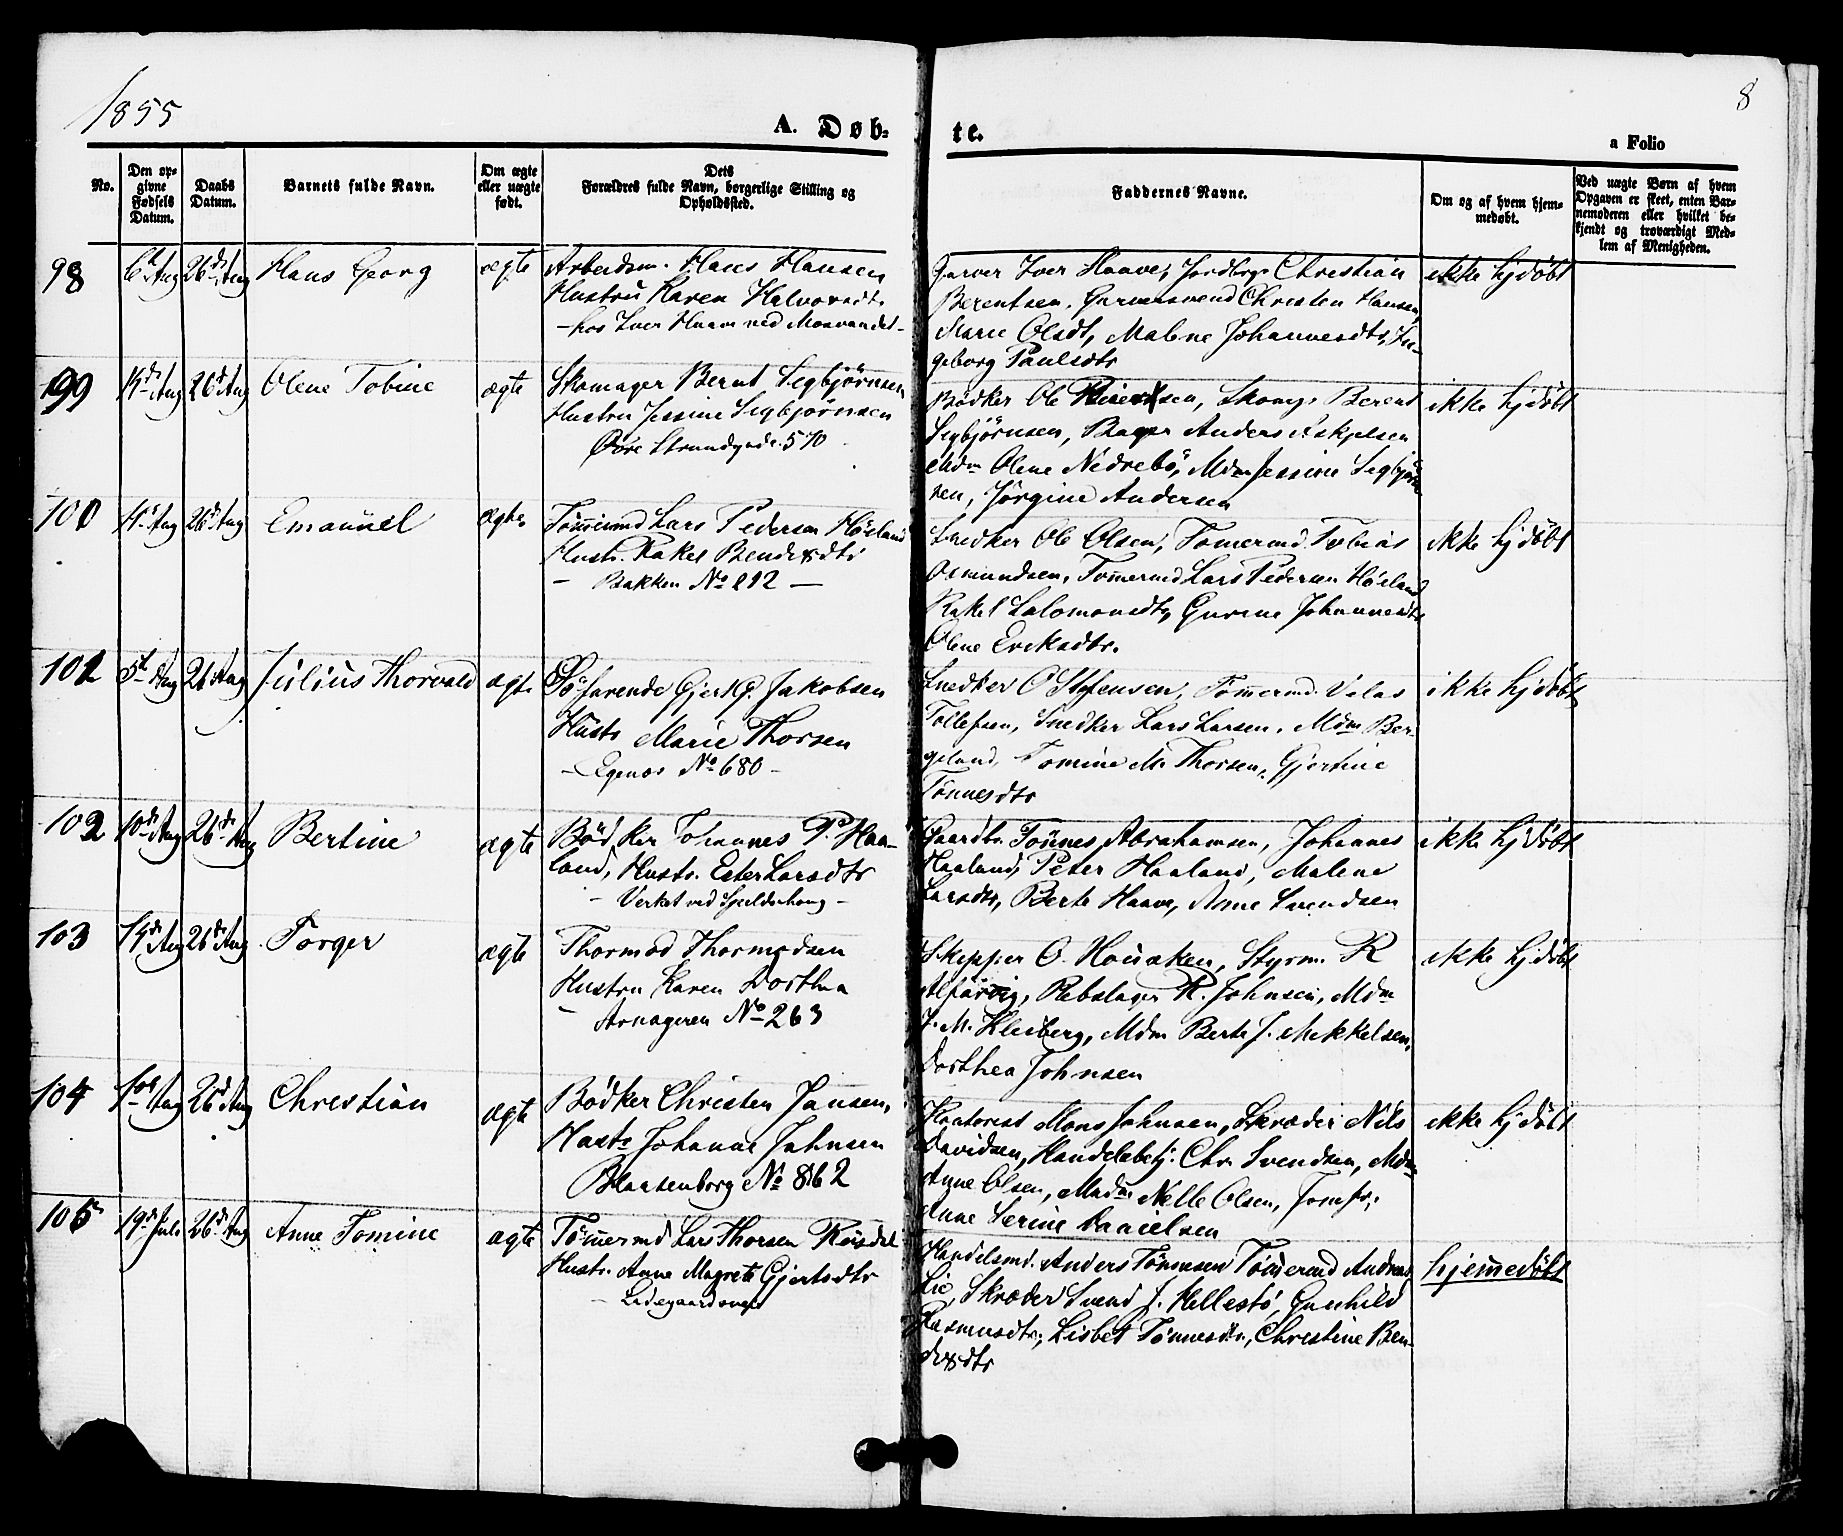 1855
8
A. Døb-
te.
a Folio
No.
Den op-
givne
Fødsels
Datum.
Daabs
Datum.
Barnets fulde Navn.
Om ægte
eller uægte
født.
Dets
Forældres fulde Navn, borgerlige Stilling og
Opholdssted.
Faddernes Navne.
Om og af hvem hjem-
medøbt.
Ved uægte Børn af hvem
Opgaven er skeet, enten Bar-
nemoderen eller hvilket be-
kjendt og troværdigt Med-
lem af Menigheden.
98
6t Aug
26de Aug
Hans Georg
ægte
Arbeidsm. Hans Hansen
Hustru Karen Halvorsdtr
- hos Iver Haave ved Mosvandet -
Garver Iver Haave, Jordbr. Christian
Berentsen, Garversvend Christen Hansen
Marie Olsdt, Malene Johannesdtr, In-
geborg Paulsdtr
ikke hjdöbt
99
Aug
26d Aug
Olene Tobine
ægte
Skomager Bernt Segbjørnsen
Hustru Jessine Segbjørnsen
Øvre Strandgade 570
Bødker Ole sen, Skomgr Berent
Segbjörnsen, Bager Anders Eskjelsen
Mdm Olene Nedrebö, Mdm Jessine Segbjörn
sen, Jörgine Andersen
ikke hjdöbt
100
Aug
26d Aug
Emanüel
ægte
Tömmermd Lars Pedersen Höiland
Hustr. Rakel Bendixdtr
- Bakken No 212 -
Snedker Ole Olsen, Tomermd Tobias
Osmundsen, Tomermd Lars Pedersen Höiland
Rakel Salomonsdtr, Gurine Johannesdtr
Olene Eriksdtr.
ikke hjdöbt
101
5t Aug
26 Aug
Julius Thorvald
ægte
Söfarende Gjert G. Jakobsen
Hustr Marie Thorsen
- Egenæs No 680 -
Snedker O Stefensen, Tömmermd. Velas
Tollefsen, Snedker Lars Larsen, Mdm Ber-
geland, Tomine M. Thorsen, Gjertine
Tönnesdtr
ikke hjdöbt
102
10de Aug
26de Aug
Bertine
ægte
Bödker Johannes P. Haa-
land, Hustr. Ester Larsdtr
- Verket ved Spilderhaug -
Gaardbr. Tönnes Abrahamsen, Johannes
Haaland, Peter Haaland, Malene
Larsdtr, Berte Haave, Anne Svendsen
ikke hjdöbt
103
14de Aug
26de Aug
Torger
ægte
Thormod Thormodsen
Hustru Karen Dorthea
- Arnageren No 263
Skipper O. Housken, Styrm. R
Alfarvig, Rebslager R. Johnsen, Mdm
J. M. Kleiberg, Mdm Berte J. Mikkelsen,
Dorthea Johnsen
ikke hjdöbt
104
1ste Aug
26d Aug
Christian
ægte
Bödker Christen Jansen,
Hustr Johanne Jahnsen
Blaasenborg No 862
Kontorist Mons Johnsen, Skræder Nils
Davidsen, Handelsbetj. Chr. Svendsen, Mdm
Anne Olsen, Madm Nelle Olsen, Jomfr.
Anne Serine Danielsen
ikke hjdöbt
105
19de Juli
26d Aug
Anne Tomine
ægte
Tömmermd Lars Thorsen Rösdal
Hustr. Anne Magrete Gjertsdtr
- Ladegaardsvej
Handelsmd. Anders Tönnesen Tömermd Andreas
Lie, Skræder Svend J. Hellestö, Gunhild
Rasmusdtr, Lisbet Tönnesdtr, Christine Ben-
dixdtr
hjemedöbt